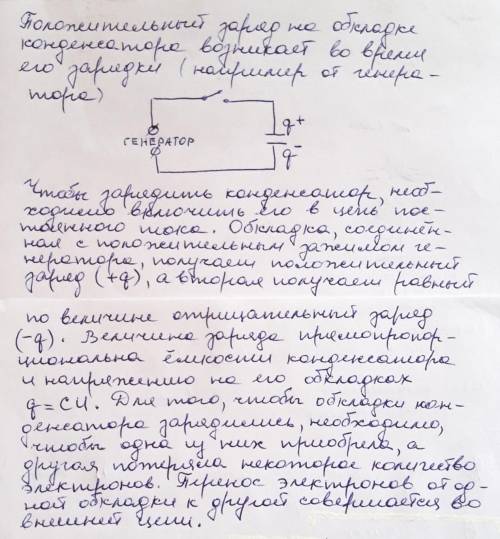 Положительный заряд на обкладке
конденсатора возникает во время
его зарядки (например от генера-
тора)
q+
ГЕНЕРАТОР
q-
Чтобы зарядить конденсатор, необ-
ходимо включить его в цепь пос-
тоянного тока. Обкладка, соединён-
ная с положительным зажимом ге-
нератора, получает положительный
заряд (+q), а вторая получает равный
по величине отрицательный заряд
(-q). Величина заряда прямопропор-
циональна ёмкости конденсатора
и напряжению на его обкладках
q=CU. Для того, чтобы обкладки кон-
денсатора зарядились, необходимо,
чтобы одна из них приобрела, а
другая потеряла некоторое количество
электронов. Перенос электронов от од-
ной обкладки к другой совершается во
внешней цепи.